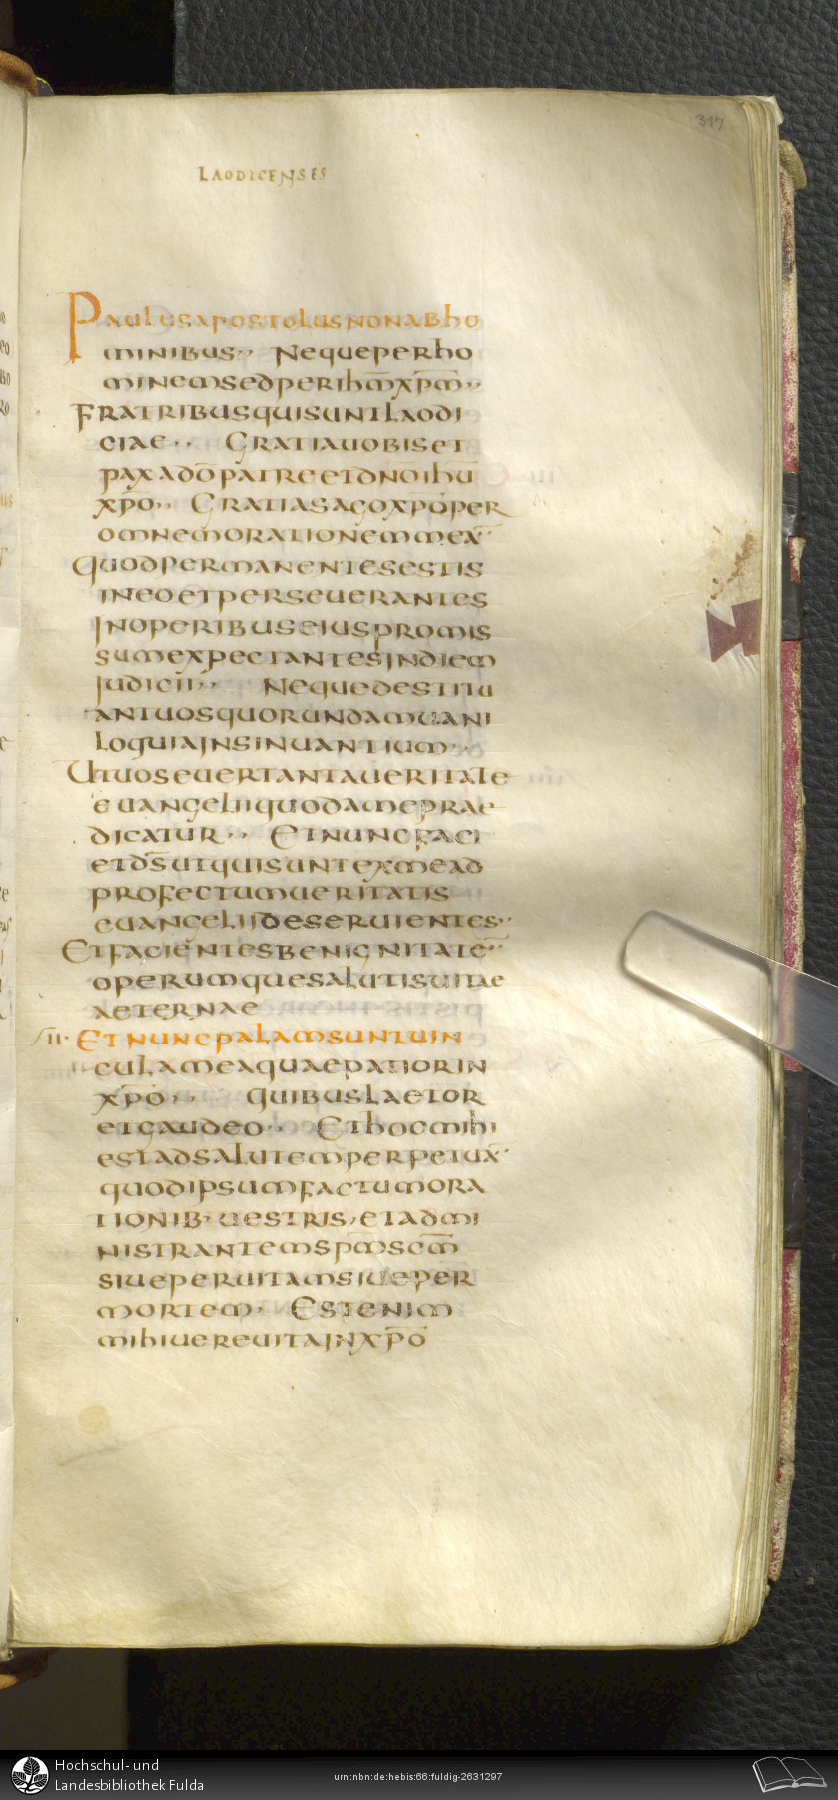 317
LAODICENSES
PAULUSAPOSTOLUSNONABHO
MINIBUS·· NEQUEPERHO
MINEMSEDPERIHM̄XPM̄··
FRATRIBUSQUISUNTLAODI
CIAE·· GRATIAUOBISET
PAXADŌPATREETDNOIHŪ
XPŌ·· GRATIASAGOXPŌPER
OMNEMORATIONEMMEĀ
QUODPERMANENTESESTIS
INEOETPERSEUERANTES
INOPERIBUSEIUSPROMIS
SUMEXPECTANTESINDIEM
IUDICII·· NEQUEDESTITU
ANTUOSQUORUNDAMUANI
LOQUIAINSINUANTIUM··
UTUOSEUERTANTAUERITATE
EUANGELIIQUODAMEPRAE
DICATUR·· ETNUNCFACI
ETDS̄UTQUISUNTEXMEAD
PROFECTUMUERITATIS
EUANGELIIDESERUIENTES··
ETFACIENTESBENIGNITATĒ··
OPERUMQUESALUTISUITAE
AETERNAE
II· ETNUNCPALAMSUNTUIN
CULAMEAQUAEPATIORIN
XPŌ·· QUIBUSLAETOR
ETGAUDEO·· ETHOCMIHI
ESTADSALUTEMPERPETUĀ·
QUODIPSUMFACTUMORA
TIONIB·UESTRIS·ETADMI
NISTRANTEMSPM̄SCM̄
SIUEPERUITAMSIUEPER
MORTEM· ESTENIM
MIHIUEREUITAINXPŌ
Hochschul- und
Landesbibliothek Fulda
urn:nbn:de:hebis:66:fuldig-2631297